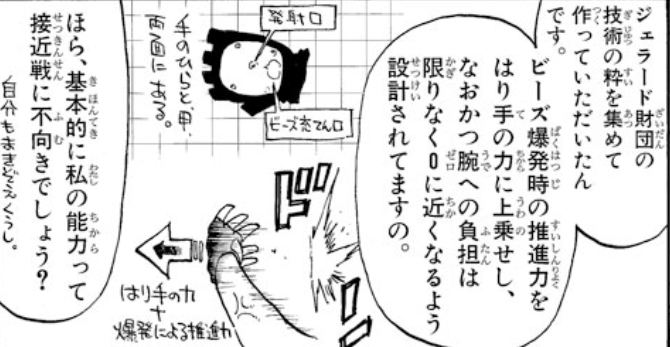 ジェラード財団の
技術の粋を集めて
作っていただいたん
です。
ビーズ爆発時の推進力を
はり手の力に上乗せし、
なおかつ腕への負担は
限りなく0に近くなるよう
設計されてますの。
発射口
手のひらと、甲、
両面にある。
ビーズ充てん口
ドッ
はり手の力
+
爆発による推進力
ほら、基本的に私の能力って
接近戦に不向きでしょう?
自分もまきぞえくうし。